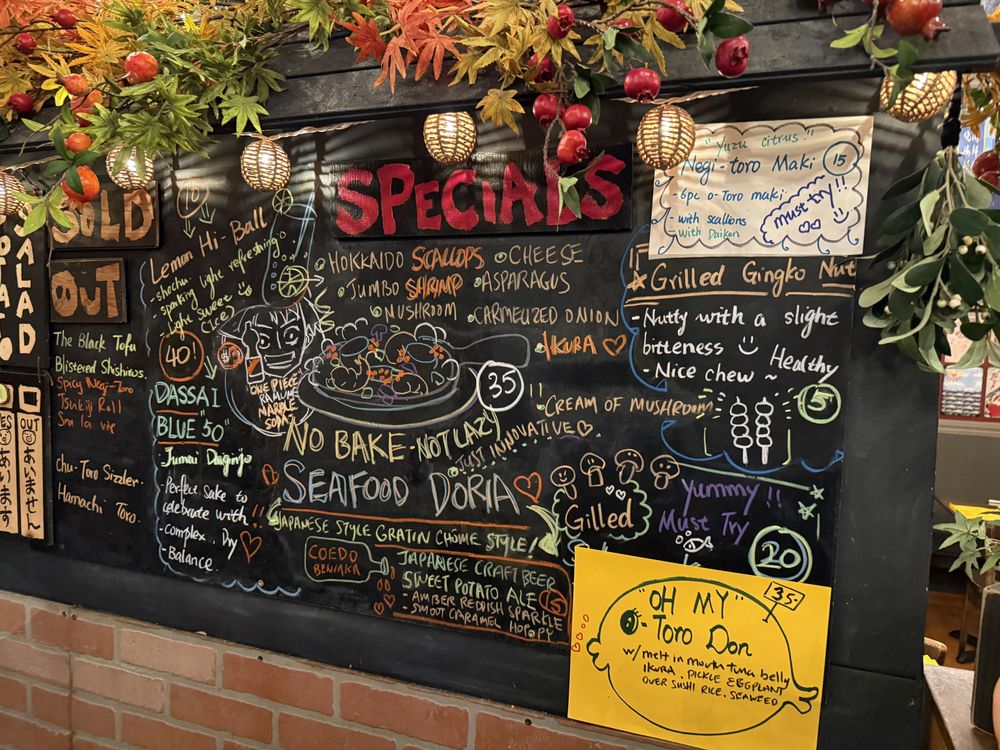 SOLD
OUT
SALAD
The Black Tofu
Blistered Shishitos
Spicy Negi-Toro
Tsukiji Roll
Chu-Toro Sizzler
Hamachi Toro
OUT
あいます
あいません
10
Lemon Hi-Ball
- shochu
- sparking light refreshing
light sweet
(ice)
40
DASSAI
BLUE "50"
Junmai Daiginjo
- Perfect sake to
celebrate with !!
- complex. Dry
- Balance.
ONE PIECE
RAMUNE
MARBLE
SODA
SPECIALS
HOKKAIDO SCALLOPS
CHEESE
JUMBO SHRIMP
ASPARAGUS
MUSHROOM
CARMELIZED ONION
IKURA
35
!!
CREAM OF MUSHROOM
NO BAKE - NOT LAZY
JUST INNOVATIVE
SEAFOOD DORIA
JAPANESE STYLE GRATIN
STYLE!
COEDO
BENIAKA
JAPANESE CRAFT BEER
SWEET POTATO ALE
- AMBER REDDISH SPARKLE
- SMOOT CARAMEL HOPOPY
"Yuzu citrus"
Negi-toro Maki
15
- 6pc o-Toro maki
- with scallions
with Daikon
must try!!
Grilled Gingko Nut
- Nutty with a slight
bitteness
Healthy
- Nice chew ~
5
Gilled
Yummy !!
Must Try
20
"OH MY"
35-
Toro Don
w/ melt in mouth tuna belly
IKURA, PICKLE EGGPLANT
OVER SUSHI RICE, SEAWEED